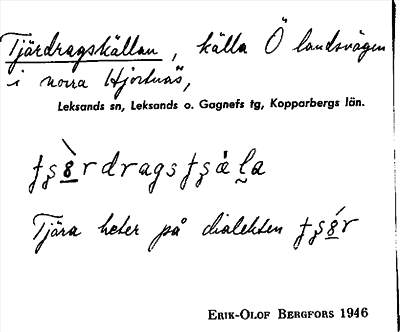 Tjärdragskällan, källa Ö landsvägen
i norra Hjortnäs,
Leksands sn, Leksands o. Gagnefs tg, Kopparbergs län.
Tjära heter på dialekten
ERIK-OLOF BERGFORS 1946